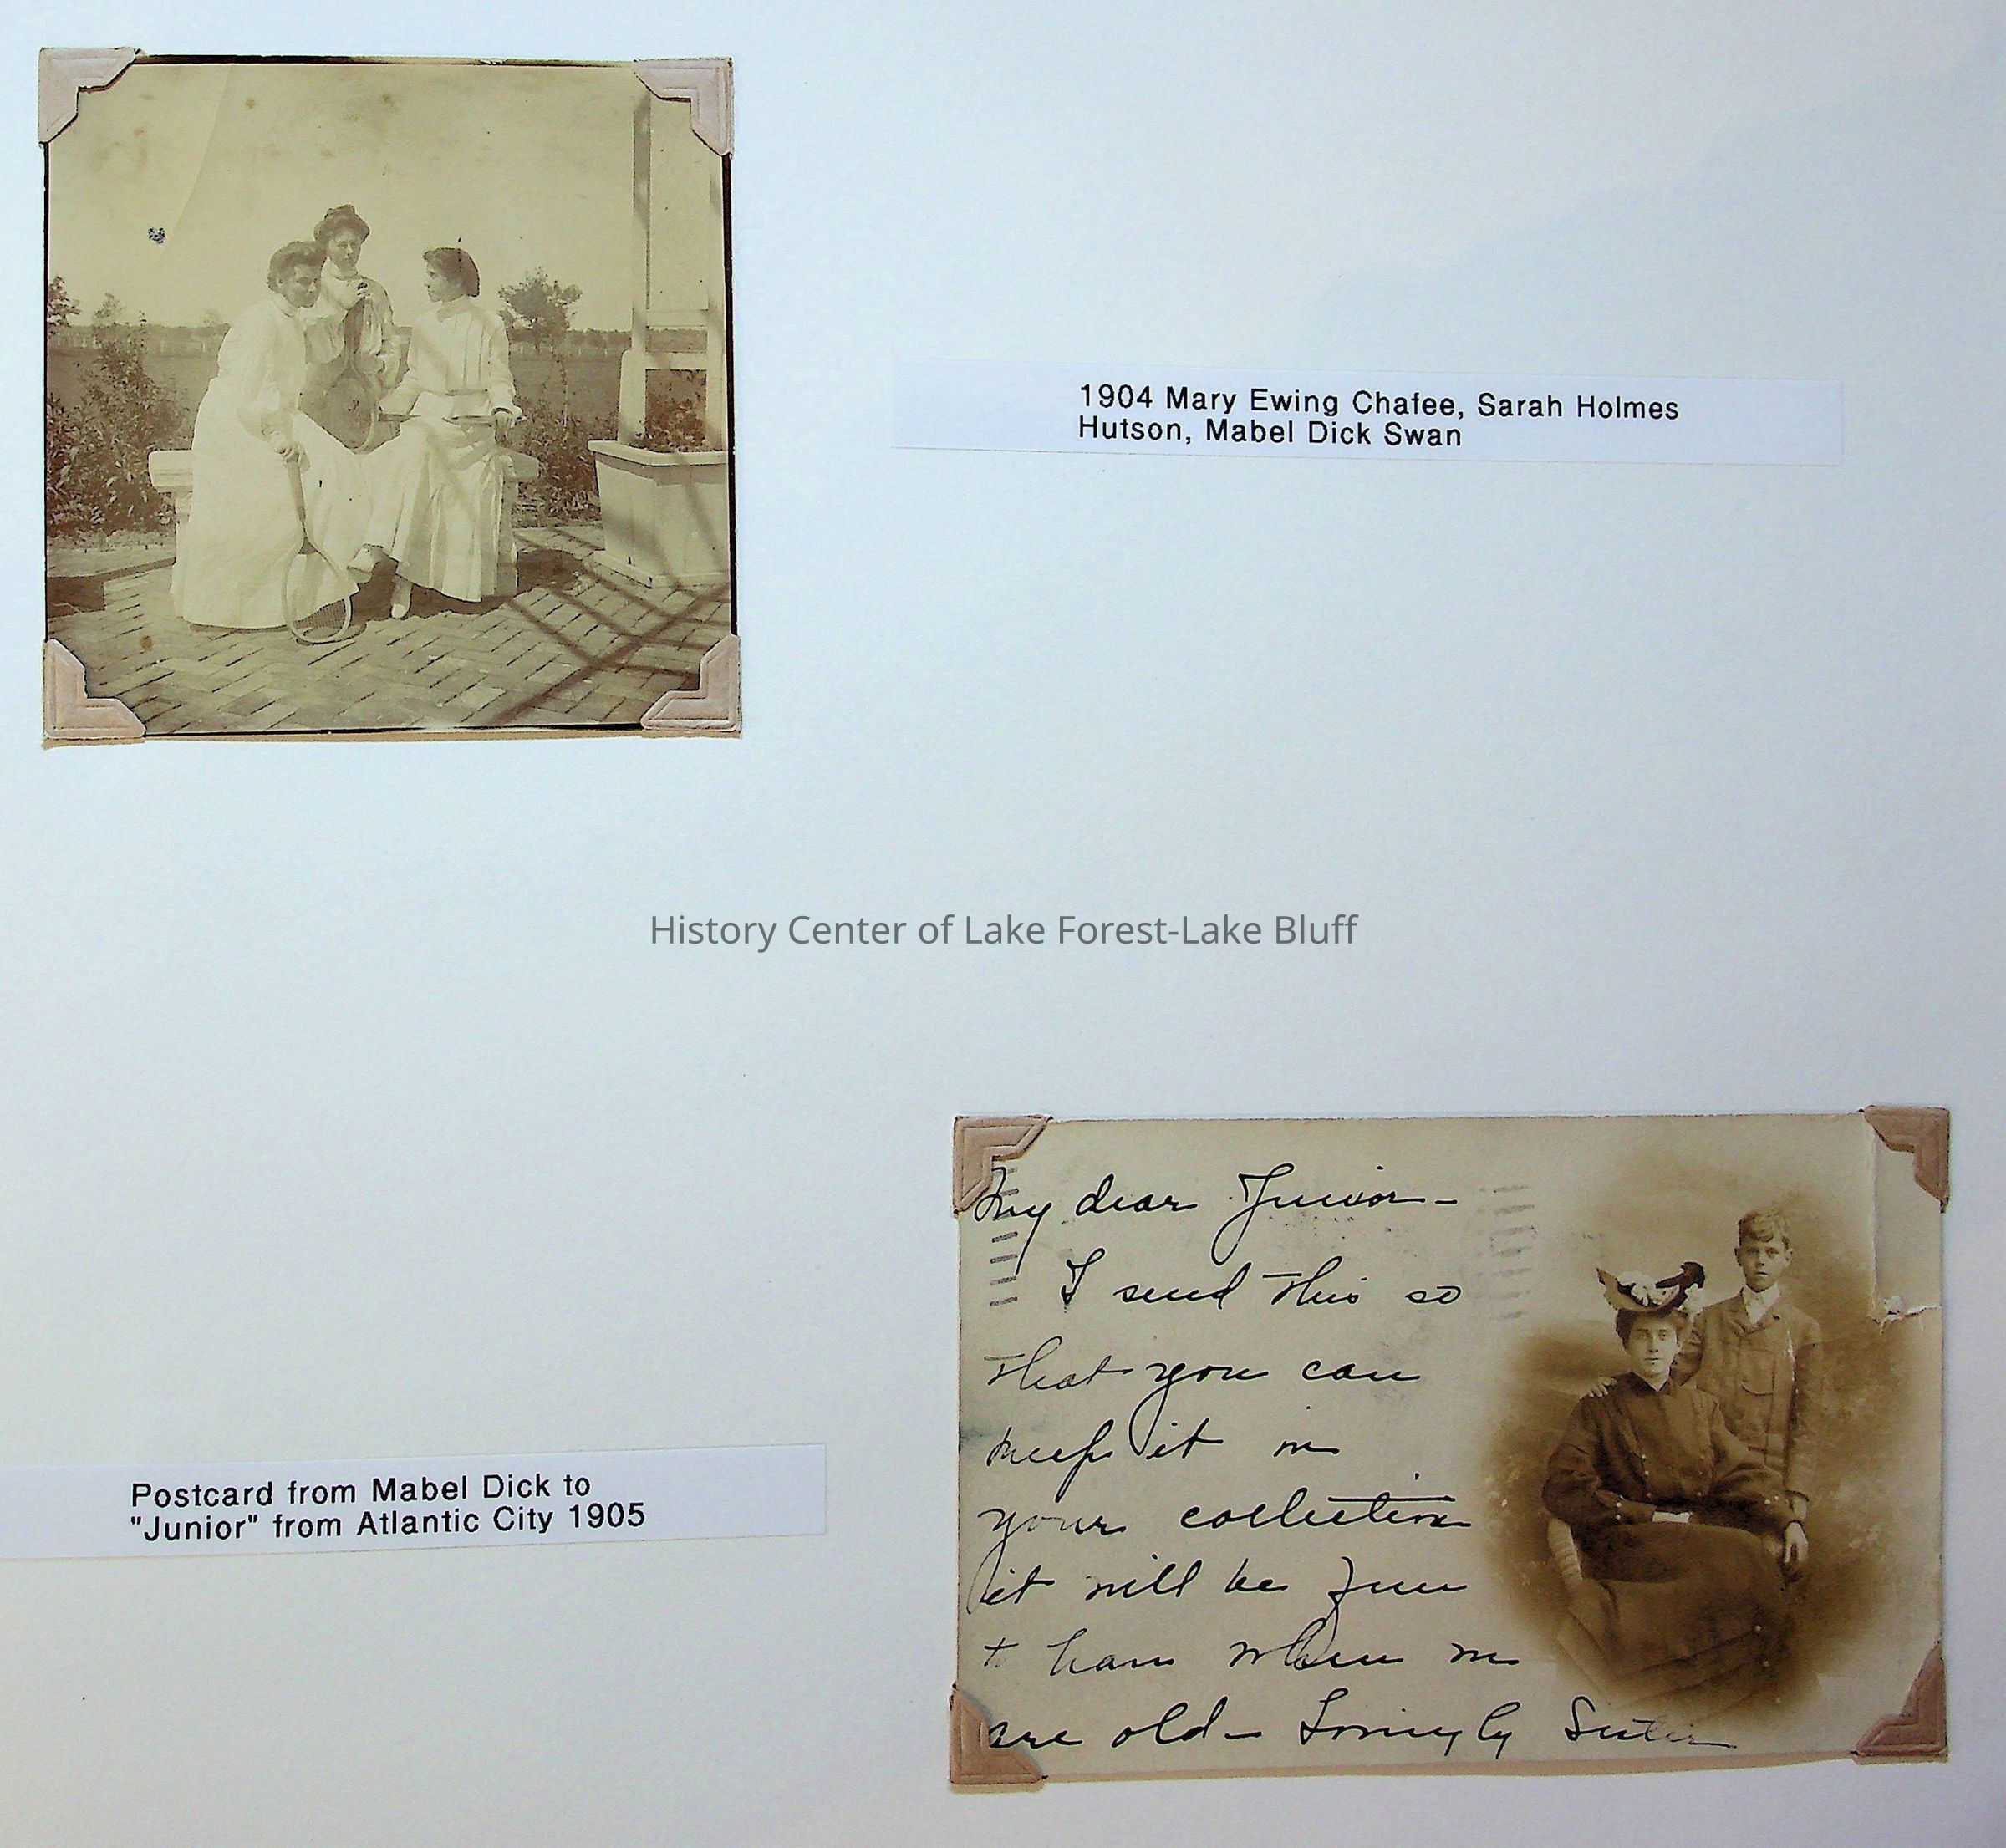 1904 Mary Ewing Chafee, Sarah Holmes
Hutson, Mabel Dick Swan
History Center of Lake Forest-Lake Bluff
My dear Junior-
I send this so
that you can
keep it in
your collection
it will be fun
to have when we
are old- Lovingly Sister
Postcard from Mabel Dick to
"Junior" from Atlantic City 1905